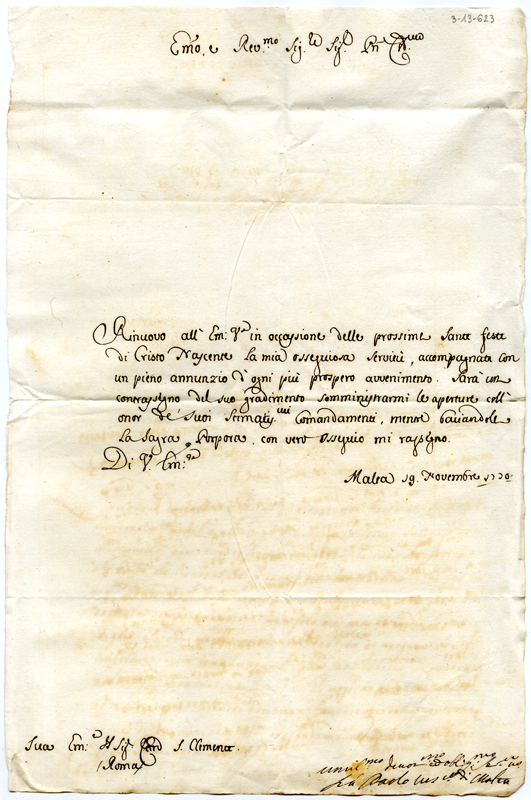 3-13-623
Emo, e Rev.mo Sig.re Sig.r Pne
Rinuovo all' Em: V.a in occasione delle prossime Sante feste
di Cristo Nascente la mia ossequiosa servitù, accompagnata con
un pieno annunzio d'ogni più prospero avvenimento. Sarà un
contrassegno del suo gradimento somministrarmi le aperture coll'
onor de' suoi stimatis.mi Comandamenti, mentre baciandole
la Sagra Porpora, con vero ossequio mi rassegno.
Di V. Em:za
Malta 19. Novembre 1770.
Sua Em:a Il Sig. Card S. Clemente
(Roma)
umil.mo devot.mo obl.mo
fra Paolo ves.o di Malta